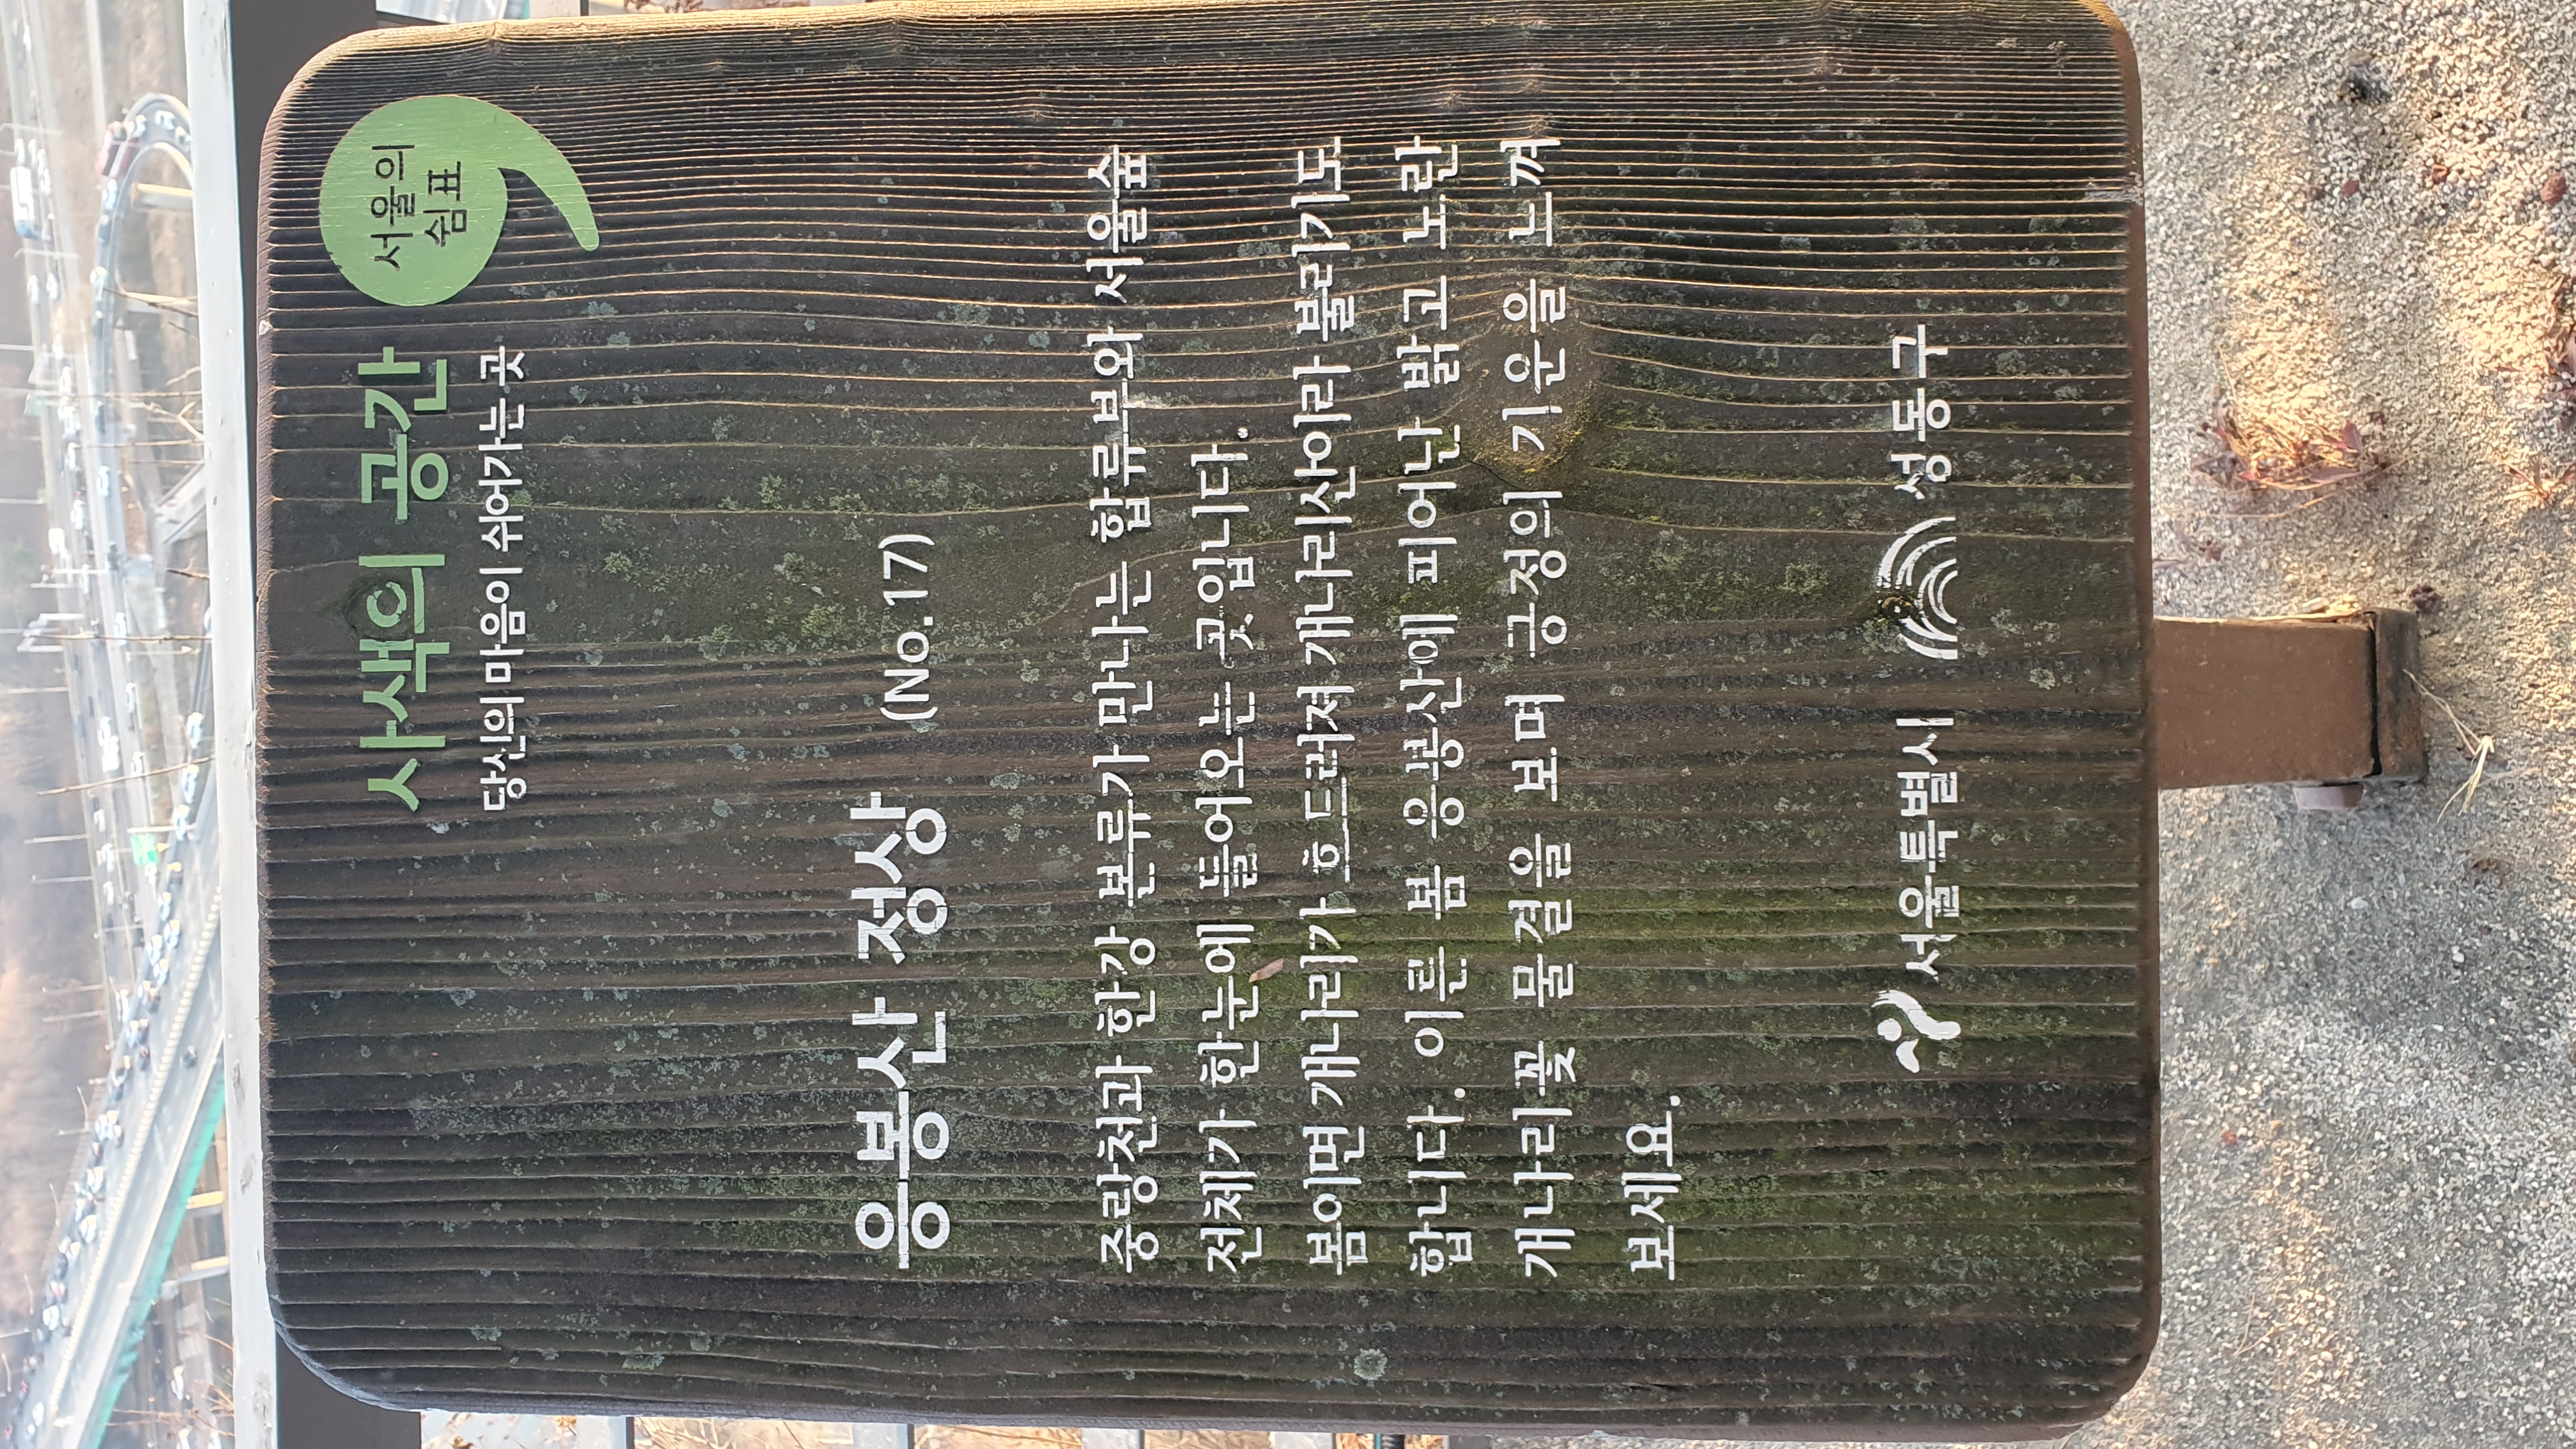 사색의 공간
당신의 마음이 쉬어가는 곳
서울의
쉼표
응봉산 정상 (No.17)
중랑천과 한강 본류가 만나는 합류부와 서울숲
전체가 한눈에 들어오는 곳입니다.
봄이면 개나리가 흐드러져 개나리산이라 불리기도
합니다. 이른 봄 응봉산에 피어난 밝고 노란
개나리꽃 물결을 보며 긍정의 기운을 느껴
보세요.
서울특별시 성동구